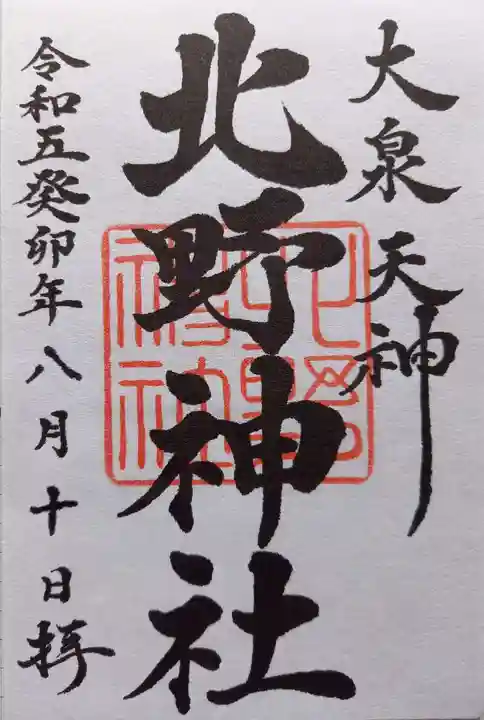 大泉天神
北野神社
令和五癸卯年八月十日拝
北野
神社